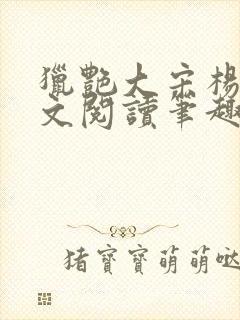 獵艷大宋楊
文閱讀筆趣
猪寶寶萌萌噠